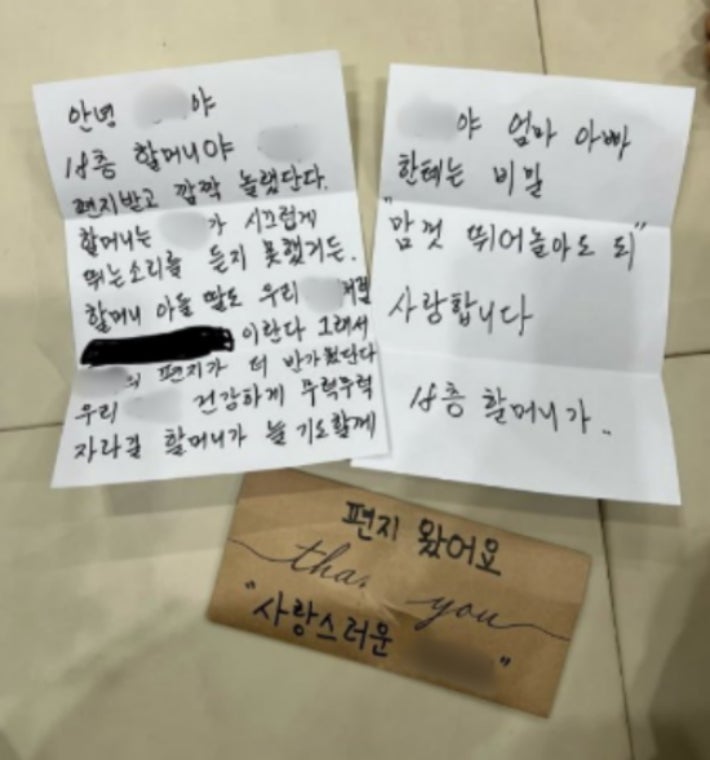 안녕 야
18층 할머니야
편지받고 깜짝 놀랬단다.
할머니는 가 시끄럽게
뛰는소리를 듣지 못했거든.
할머니 아들 딸도 우리 처럼
이란다 그래서
의 편지가 더 반가웠단다
우리 건강하게 무럭무럭
자라길 할머니가 늘 기도할께
야 엄마 아빠
한테는 비밀
"맘껏 뛰어놀아도 되"
사랑합니다
18층 할머니가..
편지 왔어요
you
"사랑스러운 "